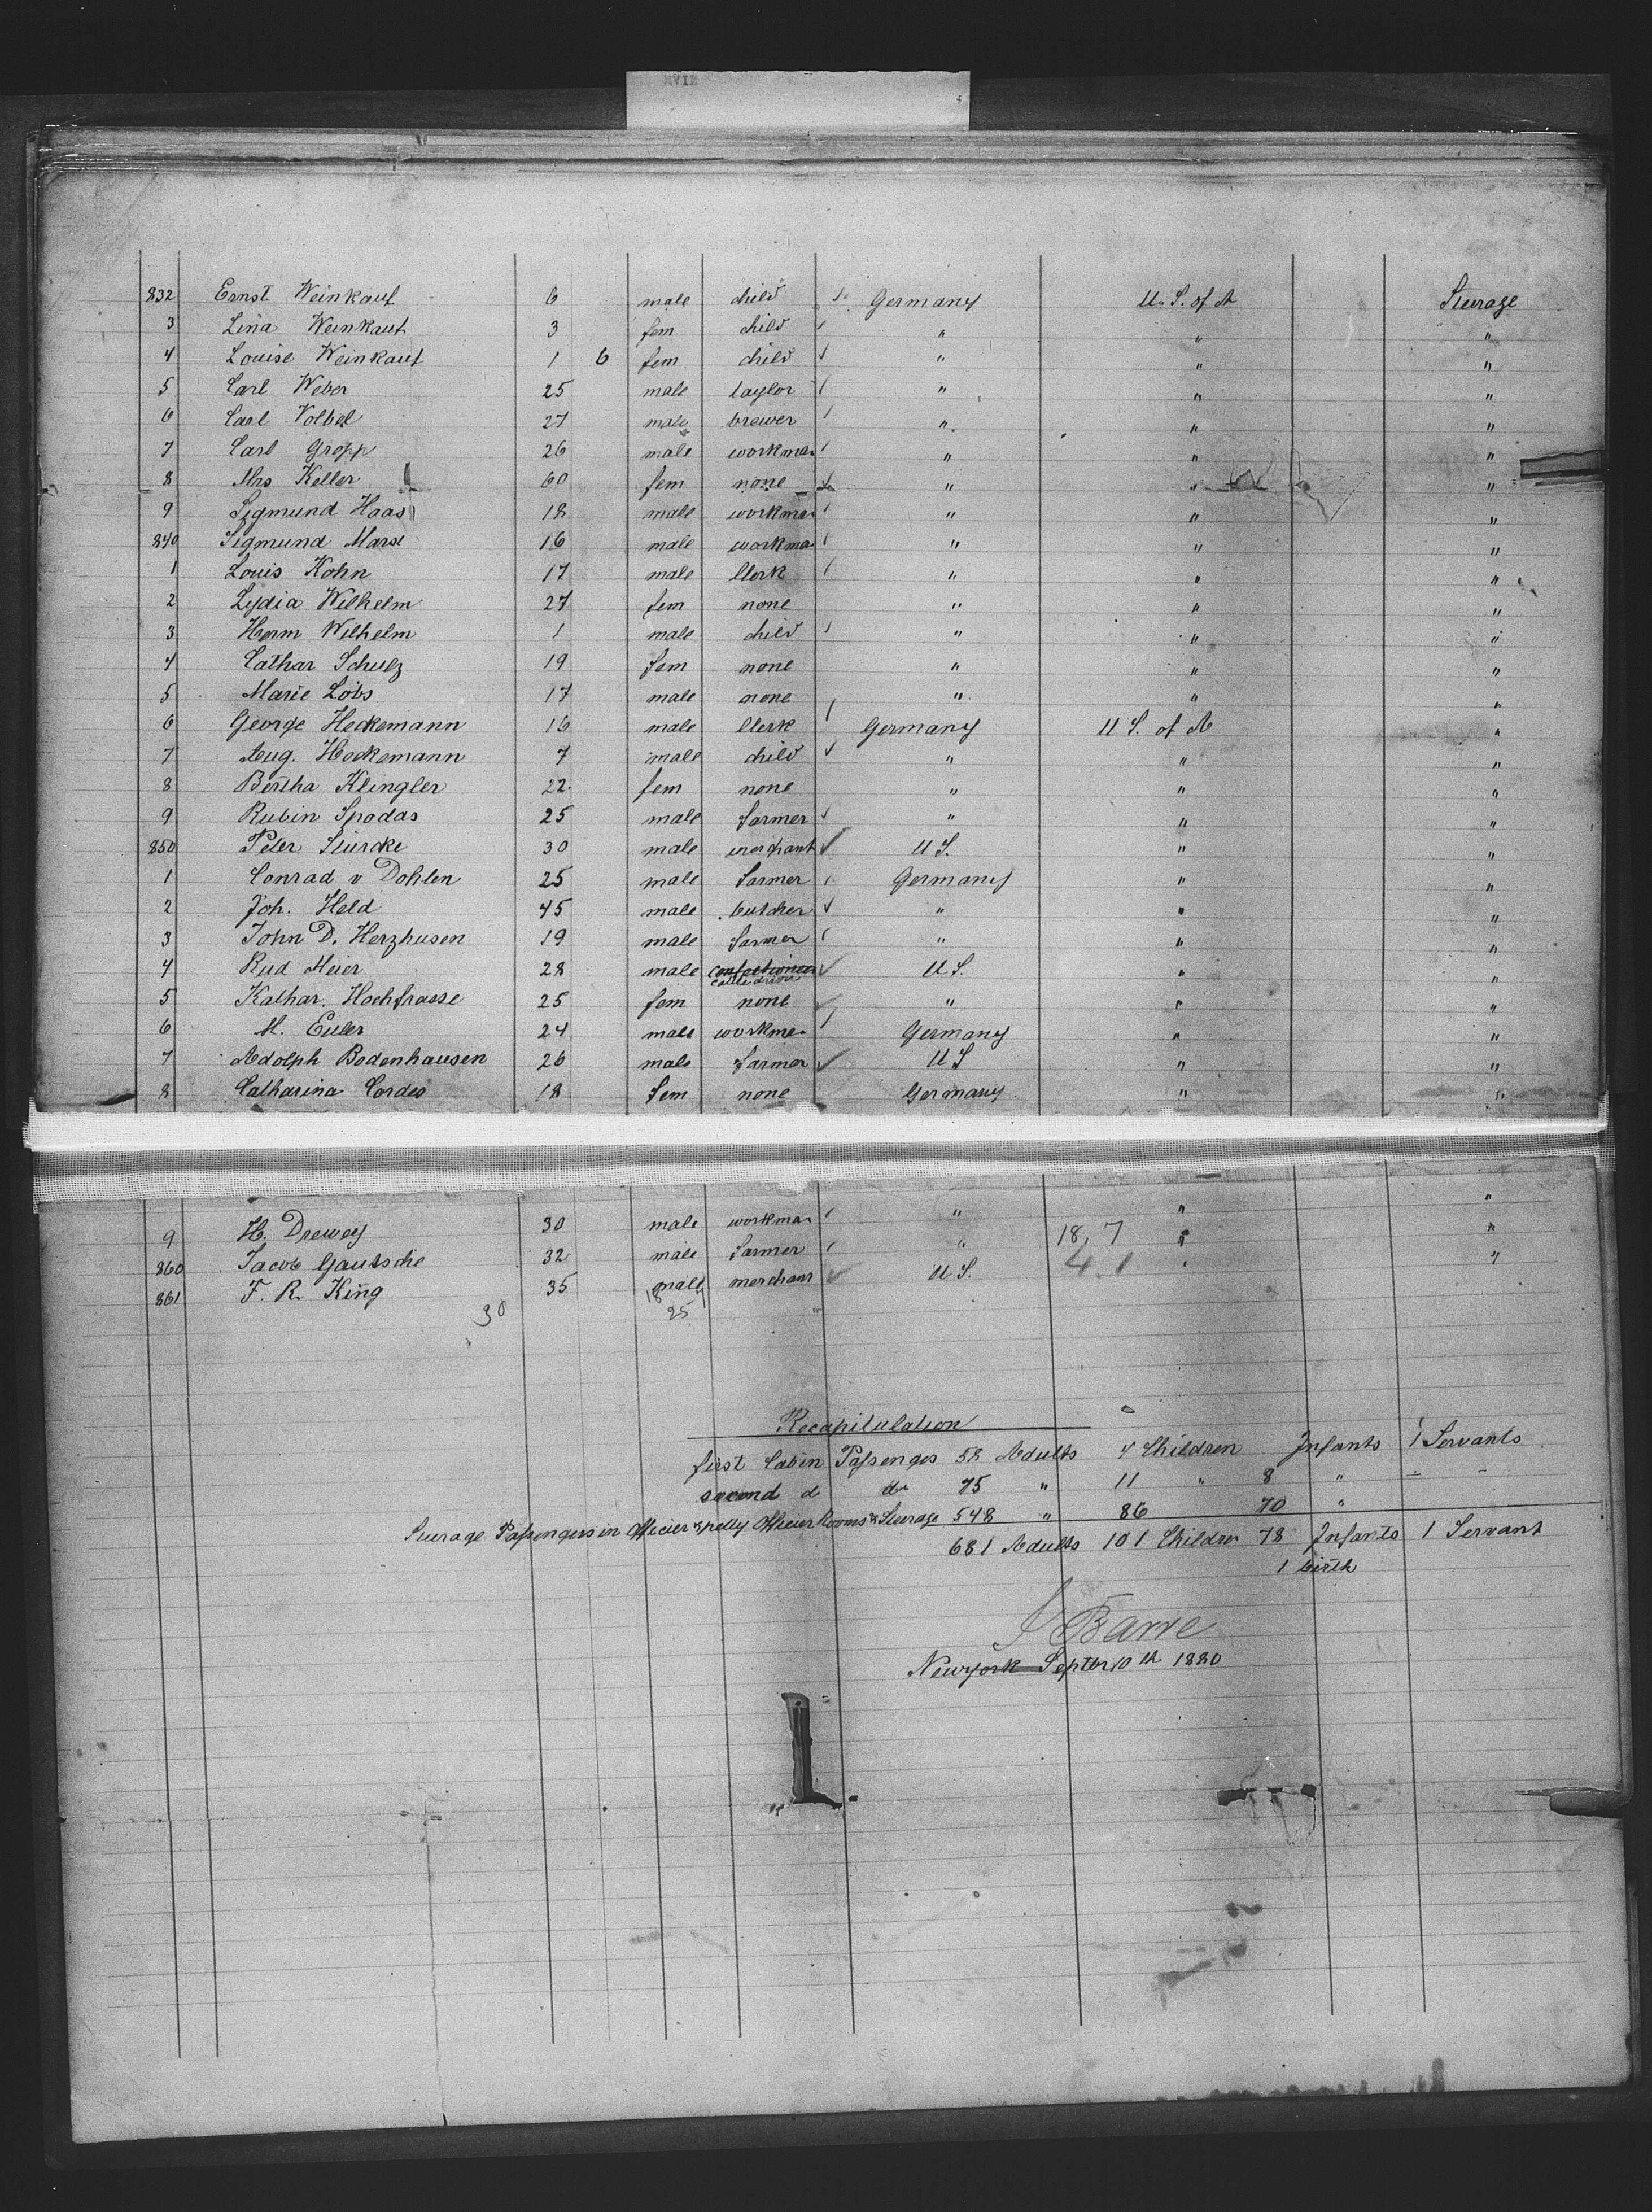 832 Ernst Weinkauf 6 male child Germany U. S. of A Steerage
3 Lina Weinkauf 3 fem child " " "
4 Louise Weinkauf 1 6 fem child " " "
5 Carl Weber 25 male taylor " " "
6 Carl Volbel 27 male brewer " " "
7 Carl Gropp 26 male workman " " "
8 Mrs Keller 60 fem none " " "
9 Sigmund Haas 18 male workman " " "
840 Sigmund Marx 16 male workman " " "
1 Louis Kohn 17 male Clerk " " "
2 Lydia Wilhelm 27 fem none " " "
3 Herm Wilhelm 1 male child " " "
4 Cathar Schulz 19 fem none " " "
5 Marie Löbs 17 male none " " "
6 George Heckemann 16 male Clerk Germany U S. of A "
7 Aug. Heckemann 7 male child " " "
8 Bertha Klingler 22 fem none " " "
9 Rubin Spodas 25 male farmer " " "
850 Peter 30 male merchant U S. " "
1 Conrad v Dohlen 25 male farmer Germany " "
2 Joh. Held 45 male butcher " " "
3 John D. Herzhusen 19 male farmer " " "
4 Rud Meier 28 male confectioner U S. " "
5 Kathar. Hochfrasse 25 fem none " " "
6 M. Euler 24 male workman Germany " "
7 Adolph Bodenhausen 26 male farmer U S " "
8 Catharina Cordes 18 fem none Germany " "
9 H. Drewey 30 male workman " " "
860 Jacob Gautsche 32 male farmer " 18, 7 " "
861 F. R. King 35 male merchant U S. 4 1 " "
30 18 7
25
Recapitulation
first Cabin Passenges 58 Adults 4 Children Infants 1 Servants
second do do 75 " 11 " 8 " - -
Steerage Passengers in Officier & petty Officier Rooms & Steerage 548 " 86 70 "
681 Adults 101 Children 78 Infants 1 Servant
1 birth
Barre
Newyork Septbr 10th 1880